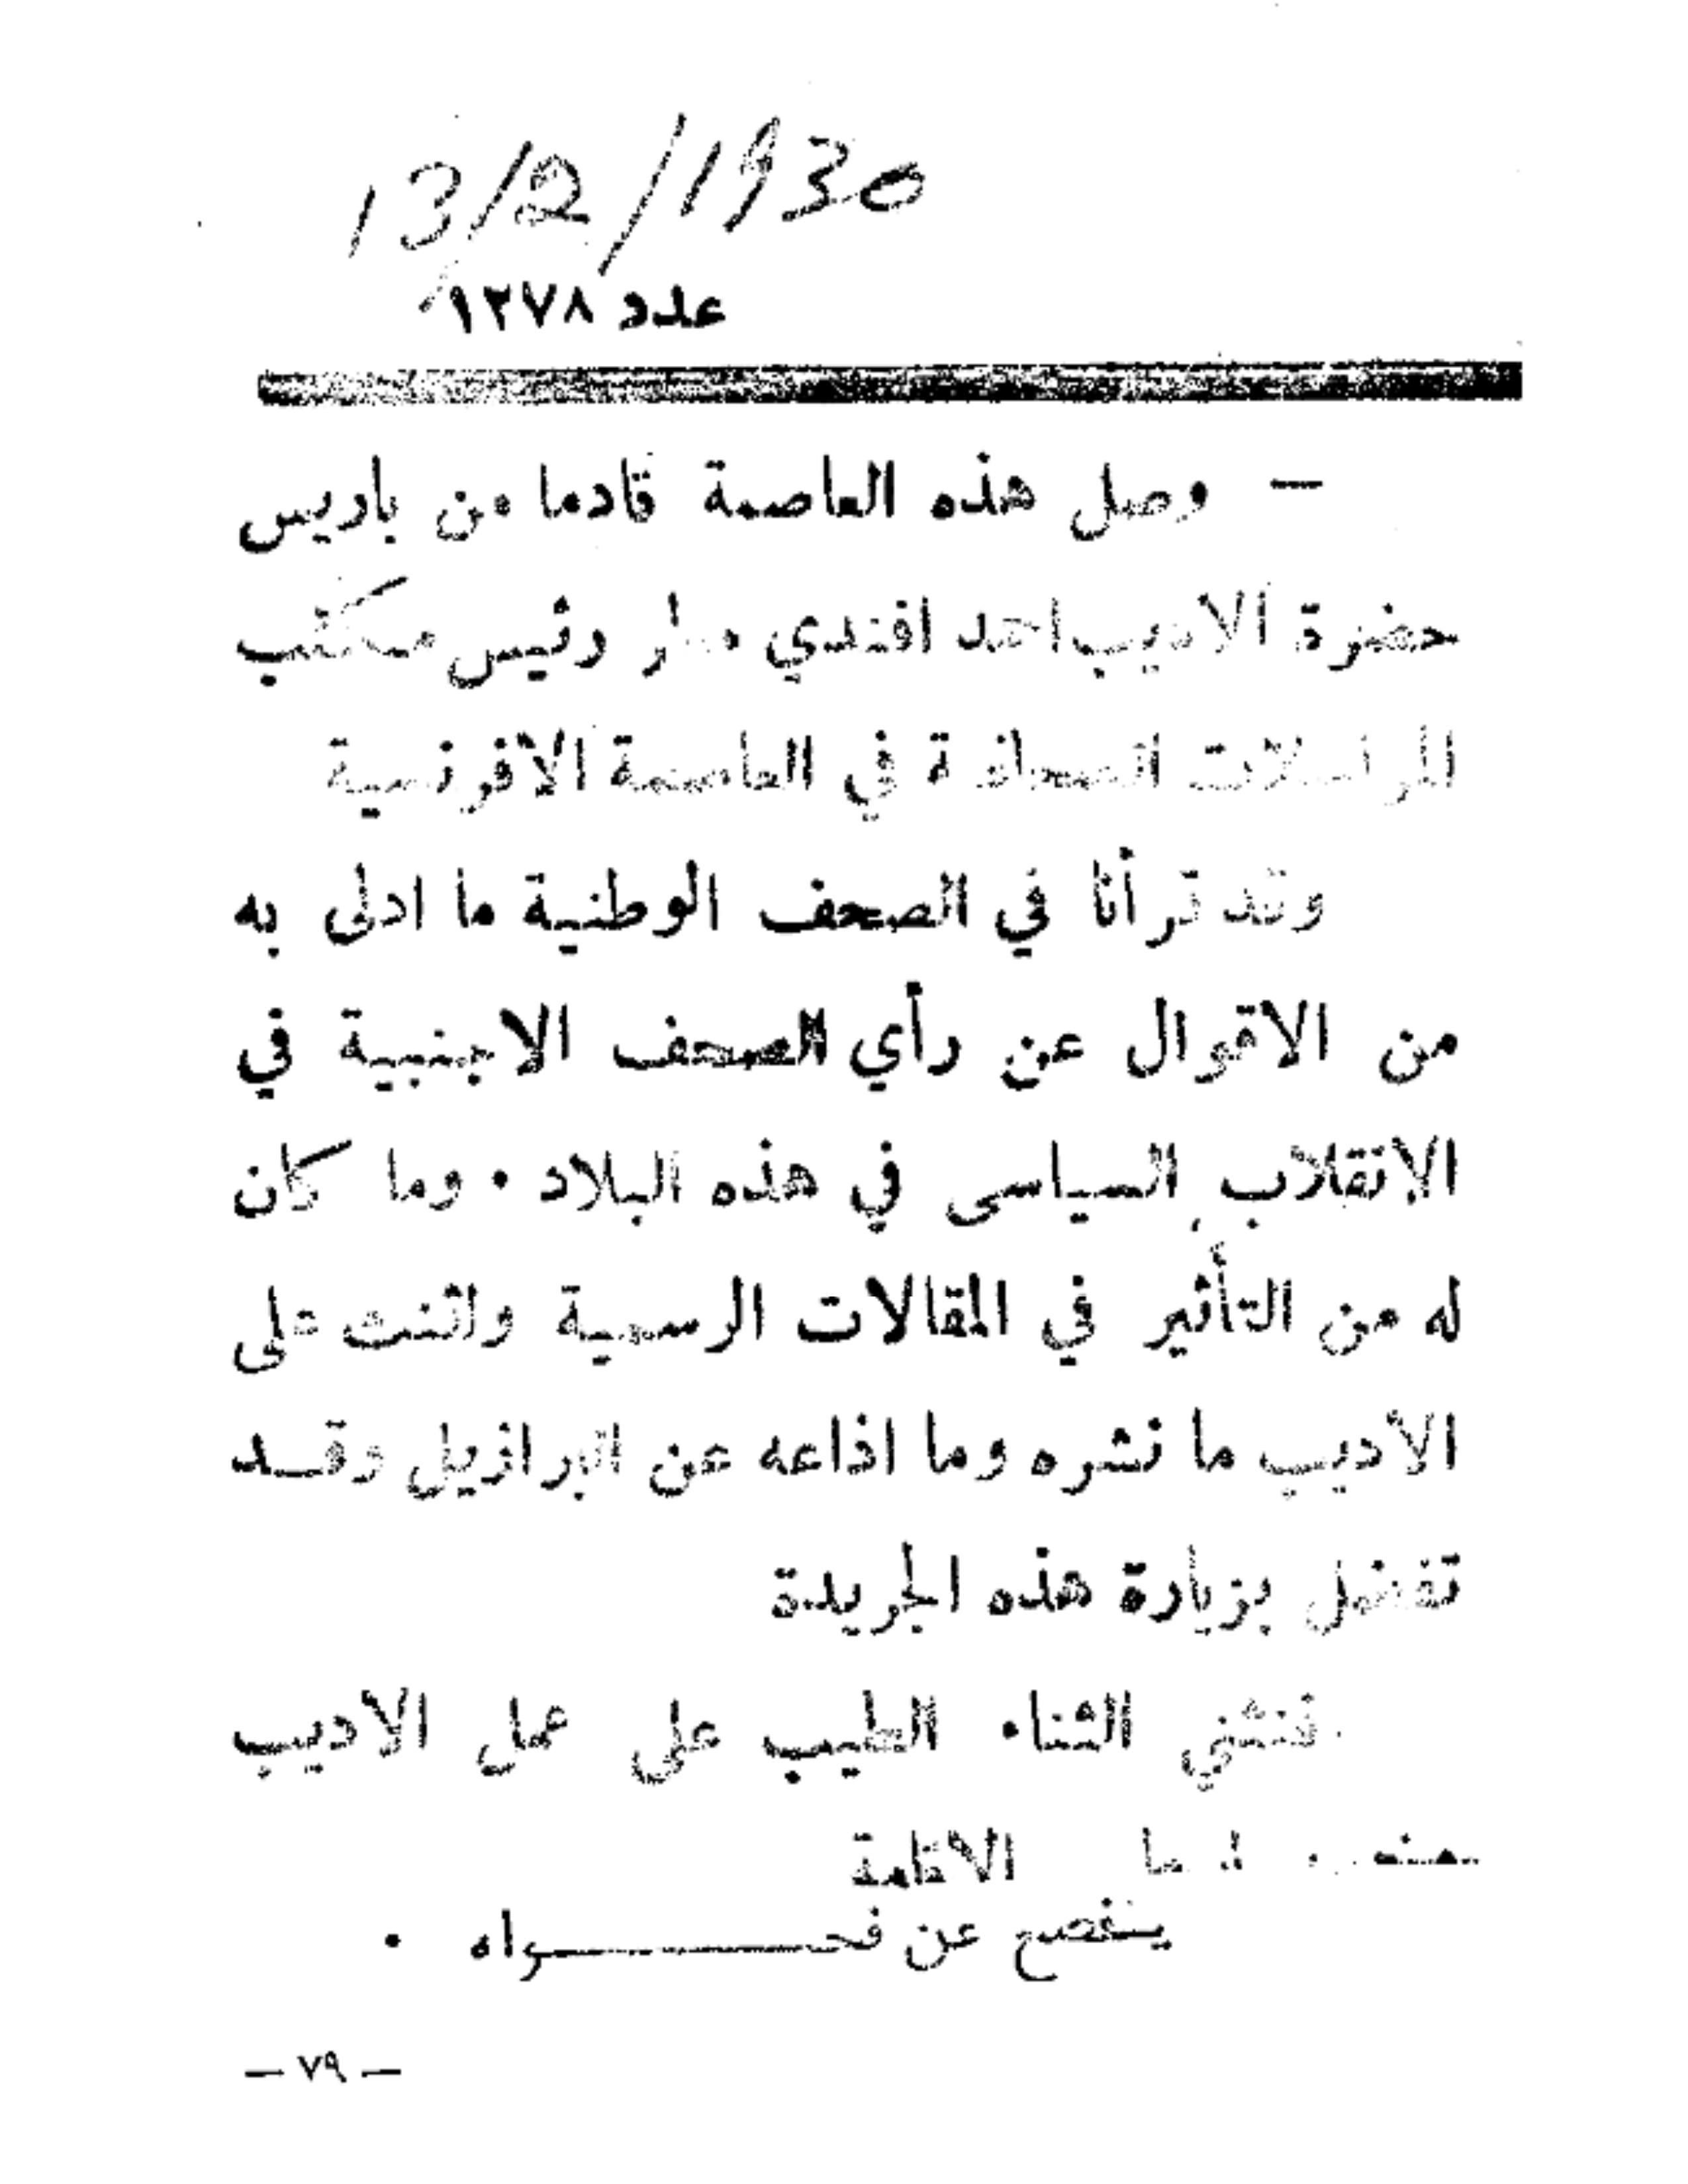 13/2/1930
عدد ١٢٧٨
— وصل هذه العاصمة قادما من باريس
حضرة الاديب احمد افندي رئيس مكتب
المراسلات الصحافية في العاصمة الافرنسية
وقد قرأنا في الصحف الوطنية ما ادلى به
من الاقوال عن رأي الصحف الاجنبية في
الانقلاب السياسى في هذه البلاد . وما كان
له من التأثير في المقالات الرسمية واثنت على
الأديب ما نشره وما اذاعه عن البرازيل وقــد
تفضل بزيارة هذه الجريدة
فنثني الثناء الطيب على عمل الاديب
ينفصح عن فحــــــواه .
— ٧٩ —